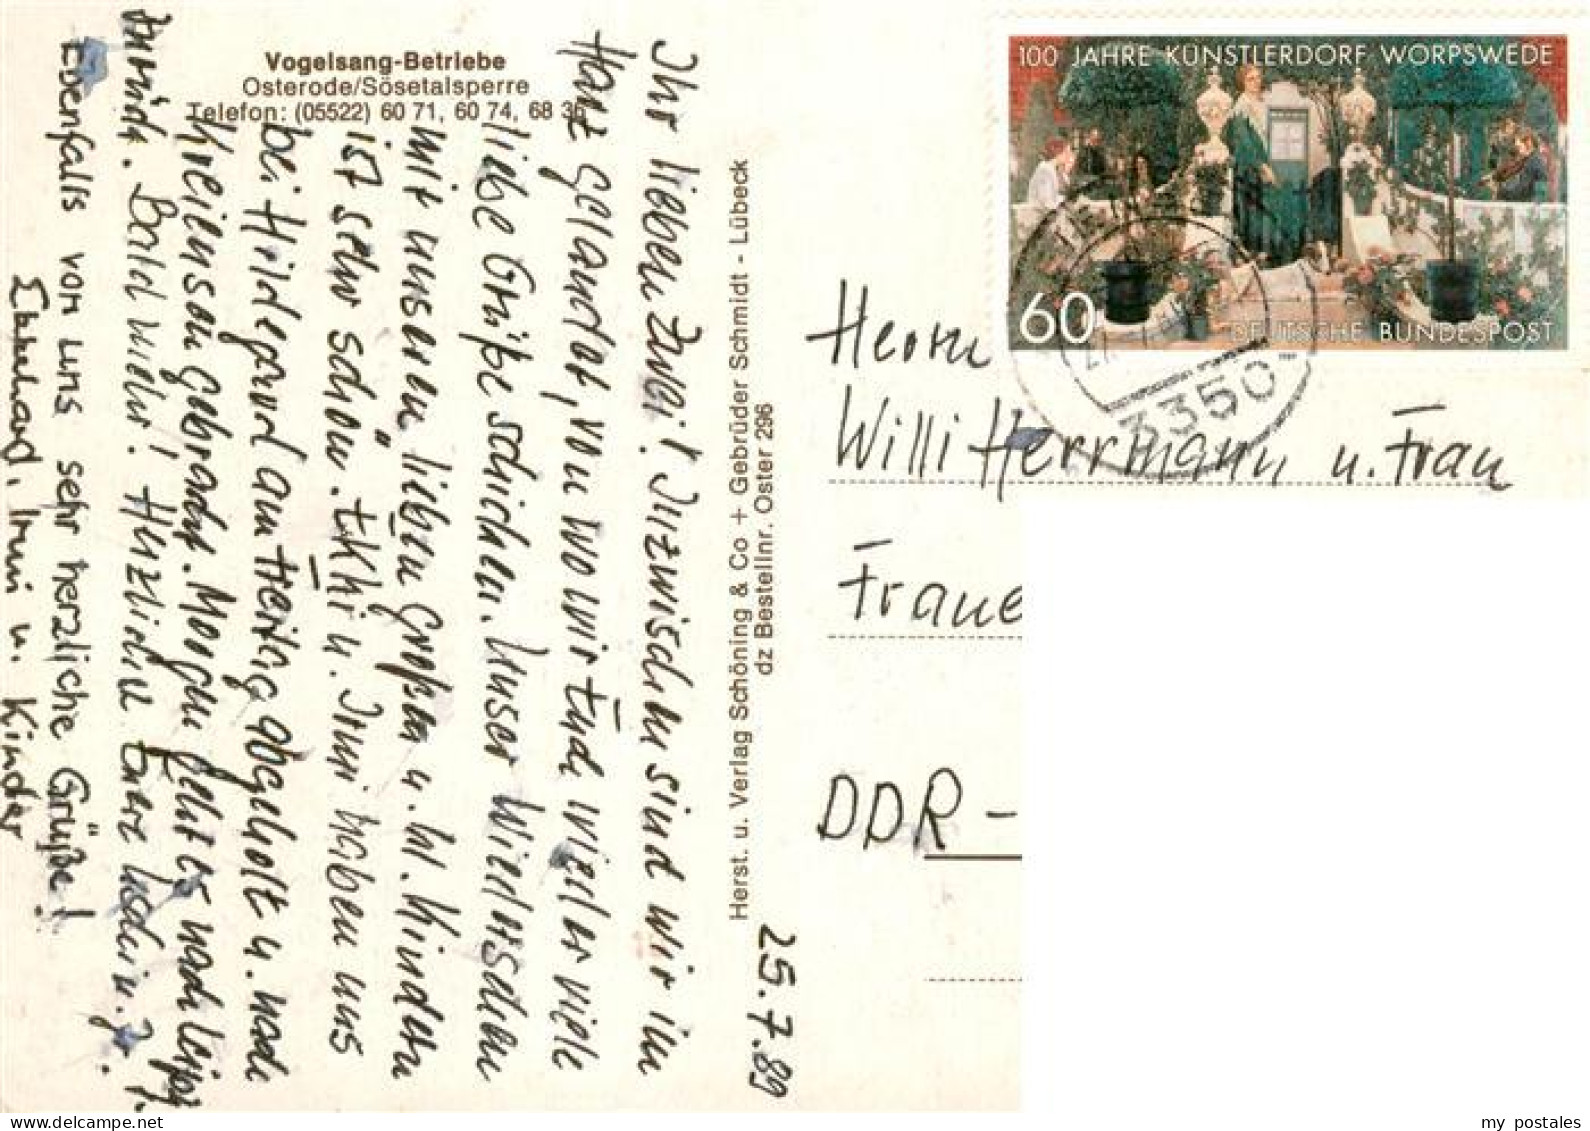 Vogelsang-Betriebe
Osterode/Sösetalsperre
Telefon: (05522) 60 71, 60 74, 68 3
25.7.89
Ihr lieben Zwei! Inzwischen sind wir im
Harz gelandet, von wo wir Euch wieder viele
liebe Grüße schicken. Unser Wiedersehen
mit unseren lieben Großen u. kl. Kindern
ist sehr schön. Ekhi u. Irmi haben uns
bei Hildegard am Freitag abgeholt u. nach
Kreiensen gebracht. Morgen geht es nach Leipzig
zurück. Bald mehr! Herzlichst Eure
Ebenfalls von uns sehr herzliche Grüße!
Ekkehard, Irmi u. Kinder
Herst. u. Verlag Schöning & Co + Gebrüder Schmidt - Lübeck
dz Bestellnr. Oster 296
100 JAHRE KÜNSTLERDORF WORPSWEDE
60
DEUTSCHE BUNDESPOST
3350
Herrn
Willi Herrmann u. Frau
Fraue
DDR -
my postales